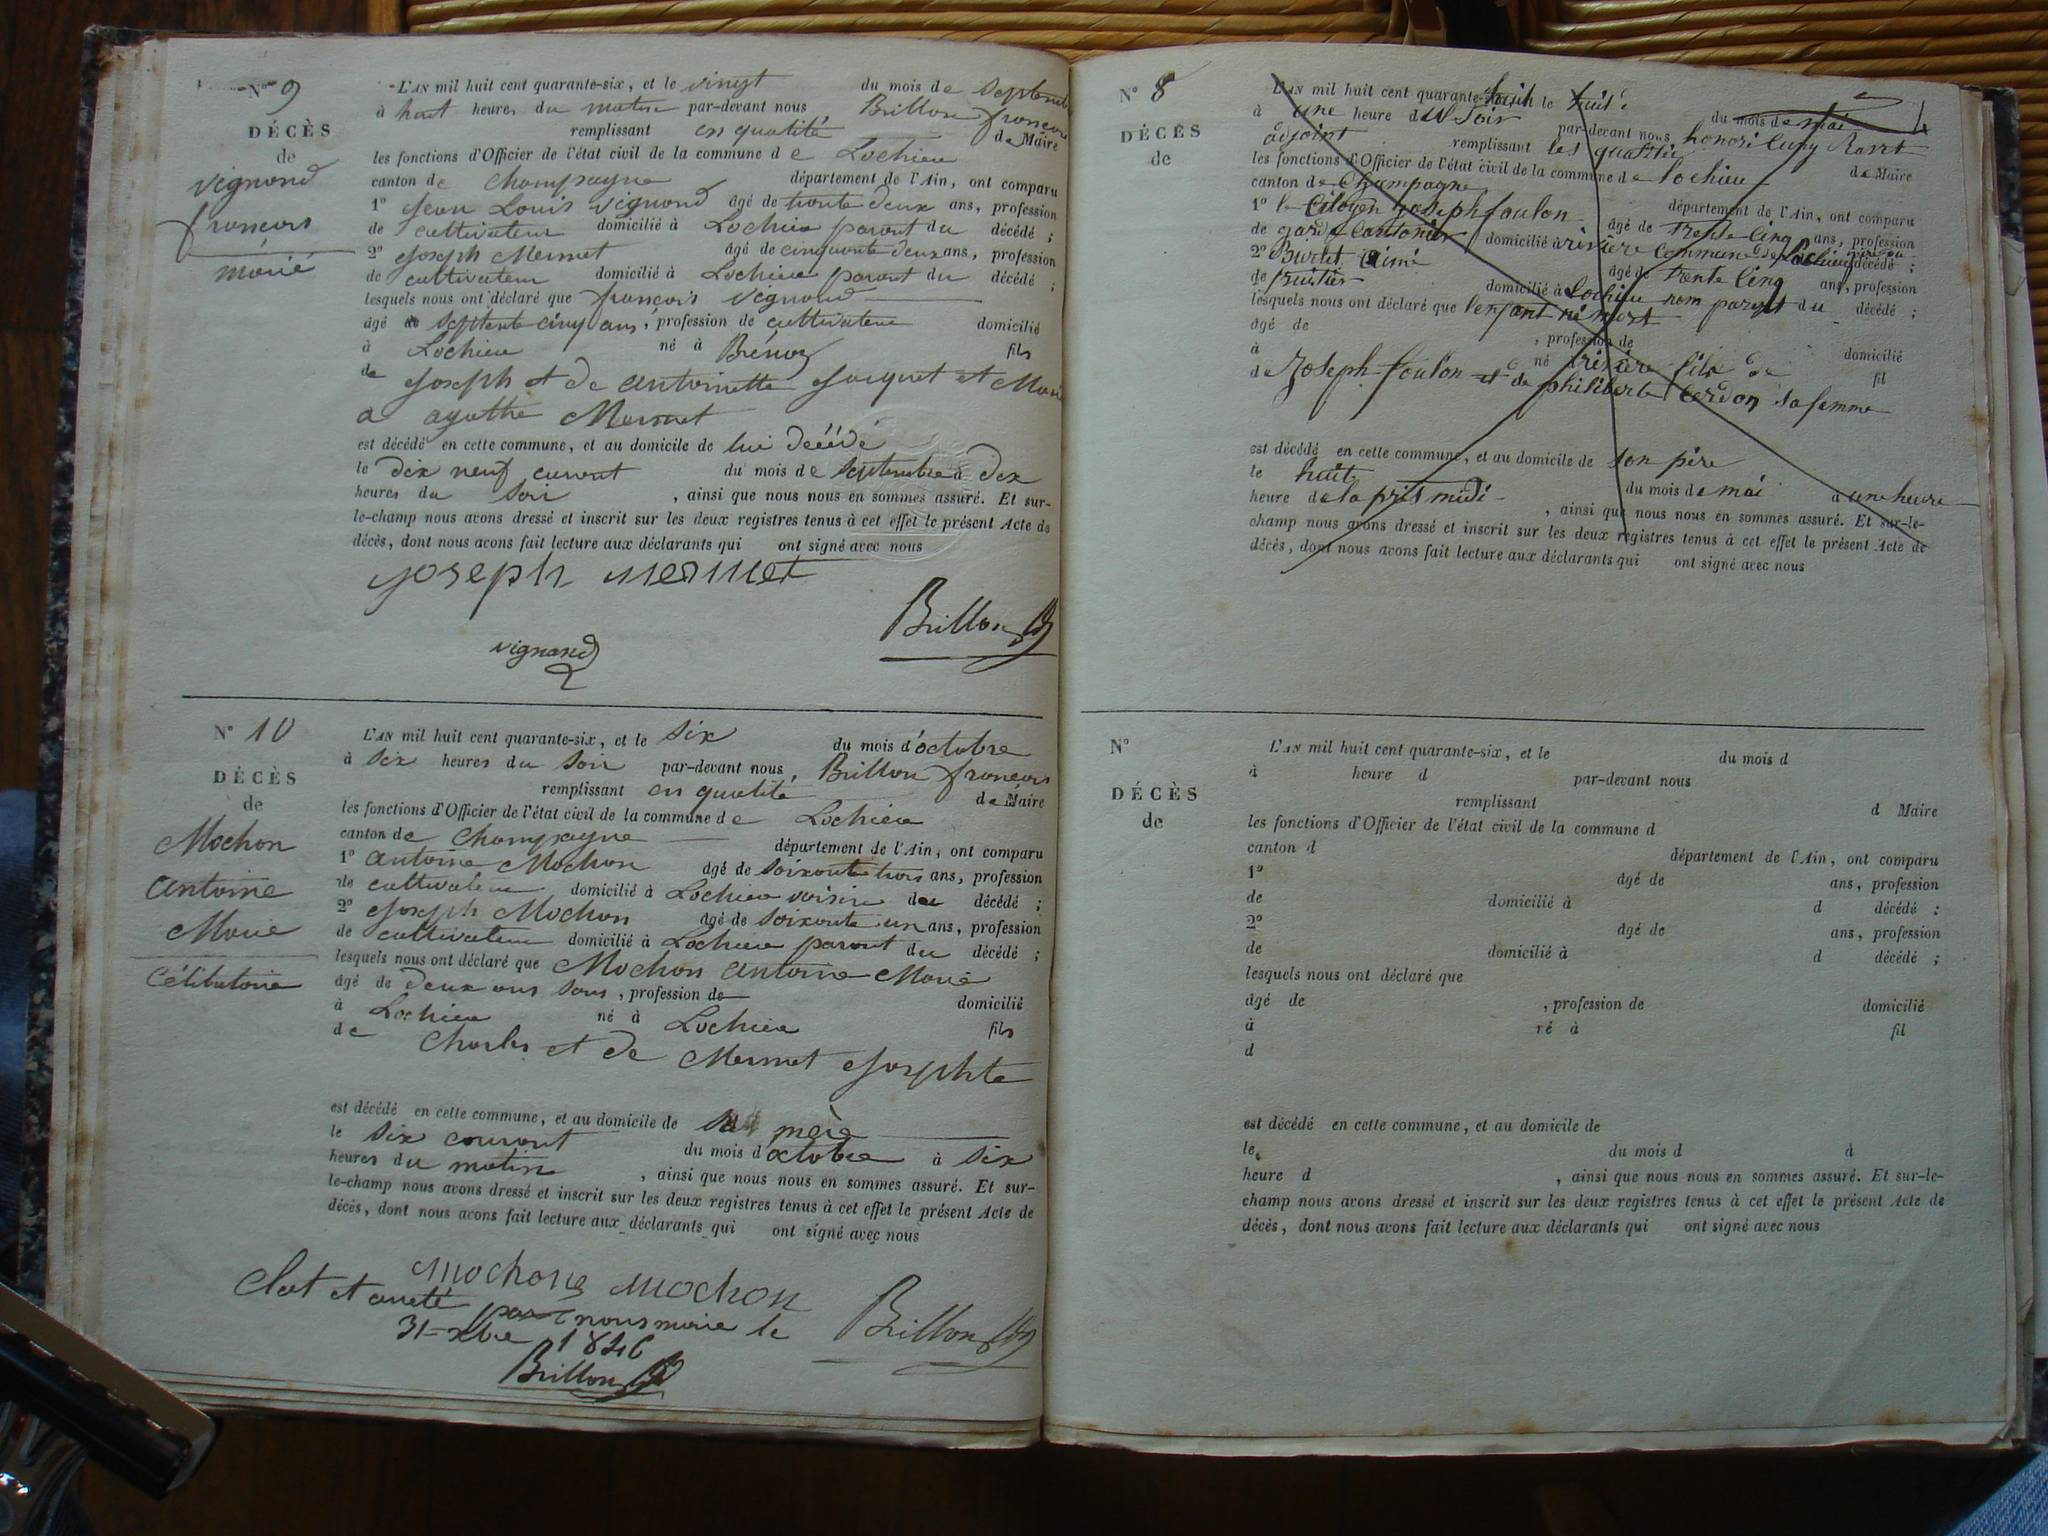 N° 9
DÉCÈS
de
Vignand
françois
marié
L'AN mil huit cent quarante-six, et le vingt du mois de Septembre
à huit heures du matin par-devant nous Brillon françois
remplissant en qualité de Maire
les fonctions d'Officier de l'état civil de la commune de Lochieu
canton de Champagne département de l'Ain, ont comparu
1° Jean Louis Vignand âgé de trente deux ans, profession
de cultivateur domicilié à Lochieu parent du décédé ;
2° Joseph Mermet âgé de cinquante deux ans, profession
de cultivateur domicilié à Lochieu parent du décédé ;
lesquels nous ont déclaré que françois Vignand
âgé de septente cinq ans, profession de cultivateur domicilié
à Lochieu né à Brénoz fils
de Joseph et de antoinette Jacquet et Marié
a agathe Mermet
est décédé en cette commune, et au domicile de lui décédé
le dix neuf courant du mois de Septembre à dix
heures du soir , ainsi que nous nous en sommes assuré. Et sur-
le-champ nous avons dressé et inscrit sur les deux registres tenus à cet effet le présent Acte de
décès, dont nous avons fait lecture aux déclarants qui ont signé avec nous
joseph mermet
Brillon
vignand
N° 10
DÉCÈS
de
Mochon
antoine
Marie
Célibataire
L'AN mil huit cent quarante-six, et le Six du mois d'octobre
à six heures du soir par-devant nous, Brillon françois
remplissant en qualité de Maire
les fonctions d'Officier de l'état civil de la commune de Lochieu
canton de Champagne département de l'Ain, ont comparu
1° antoine Mochon âgé de soixante trois ans, profession
de cultivateur domicilié à Lochieu voisin du décédé ;
2° Joseph Mochon âgé de soixante un ans, profession
de cultivateur domicilié à Lochieu parent du décédé ;
lesquels nous ont déclaré que Mochon antoine Marie
âgé de deux ans sans , profession de domicilié
à Lochieu né à Lochieu fils
de Charles et de Mermet Josephte
est décédé en cette commune, et au domicile de sa mère
le six courant du mois d octobre à six
heures du matin , ainsi que nous nous en sommes assuré. Et sur-
le-champ nous avons dressé et inscrit sur les deux registres tenus à cet effet le présent Acte de
décès, dont nous avons fait lecture aux déclarants qui ont signé avec nous
mochon mochon Brillon
Clot et arreté par nous maire le
31 xbre 1846
Brillon
N° 8
DÉCÈS
de
L'AN mil huit cent quarante-huit le huit du mois de mai
à une heure du soir par-devant nous honoré Ravet
adjoint remplissant les qualité de Maire
les fonctions d'Officier de l'état civil de la commune de Lochieu
canton de Champagne département de l'Ain, ont comparu
1° le Citoyen joseph foulon âgé de trente cinq ans, profession
de garde cantonier domicilié à rivière commune de Lochieu décédé ;
2° Burtet aimé âgé de trente cinq ans, profession
de fruitier domicilié à Lochieu non parent du décédé ;
lesquels nous ont déclaré que l'enfant né mort
âgé de , profession de domicilié
à né rivière fils de fil
de Joseph foulon et de philiberte Cerdon sa femme
est décédé en cette commune, et au domicile de son père
le huit du mois de mai à une heure
heure de la près midi , ainsi que nous nous en sommes assuré. Et sur-le-
champ nous avons dressé et inscrit sur les deux registres tenus à cet effet le présent Acte de
décès, dont nous avons fait lecture aux déclarants qui ont signé avec nous
N°
DÉCÈS
de
L'AN mil huit cent quarante-six, et le du mois d
à heure d par-devant nous
remplissant d Maire
les fonctions d'Officier de l'état civil de la commune d
canton d département de l'Ain, ont comparu
1° âgé de ans, profession
de domicilié à d décédé :
2° âgé de ans, profession
de domicilié à d décédé ;
lesquels nous ont déclaré que
âgé de , profession de domicilié
à né à fil
d
est décédé en cette commune, et au domicile de
le du mois d à
heure d , ainsi que nous nous en sommes assuré. Et sur-le-
champ nous avons dressé et inscrit sur les deux registres tenus à cet effet le présent Acte de
décès, dont nous avons fait lecture aux déclarants qui ont signé avec nous